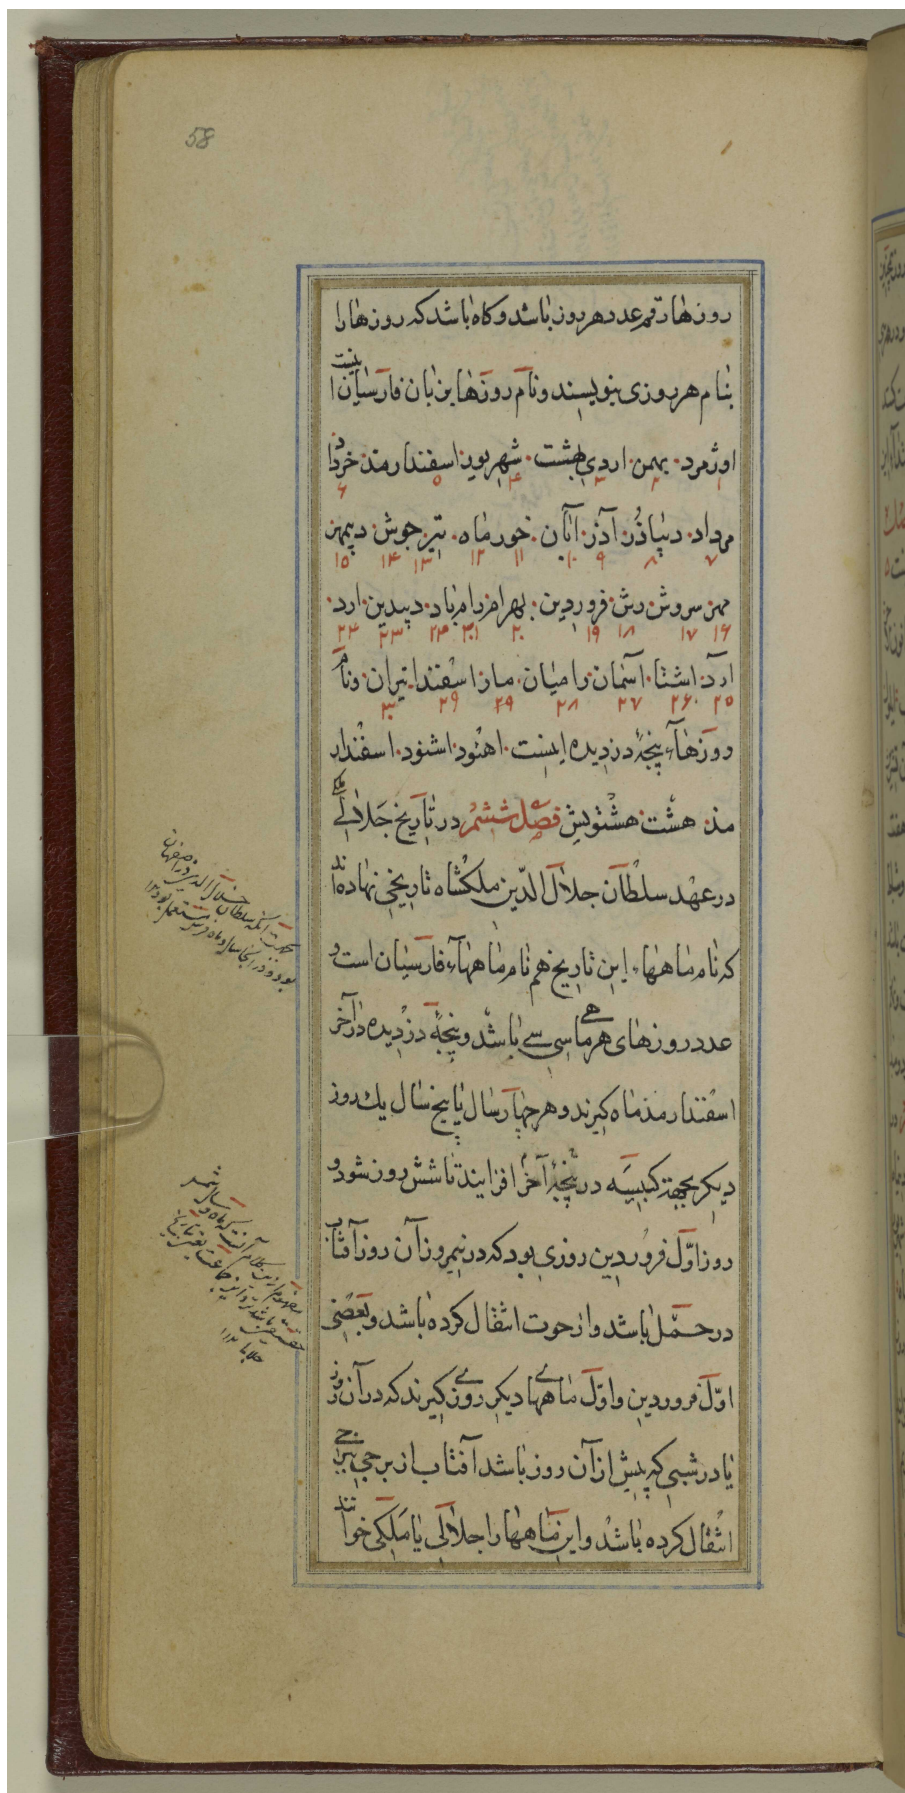 58
روزها رقم عدد هر روز باشد و کاه باشد که روزها را
بنام هر روزی بنویسند و نام روزها بزبان فارسیان اینست
اوژمرد۰ بهمن۰ اردی بهشت۰ شهریور۰ اسفندارمذ۰ خرداد
۱ ۲ ۳ ۴ ۵ ۶
مرداد۰ دیباذر۰ آذر۰ ابان۰ خور۰ ماه۰ تیر۰ جوش۰ دیبمهر
۷ ۸ ۹ ۱۰ ۱۱ ۱۲ ۱۳ ۱۴ ۱۵
مهر۰ سروش۰ رش۰ فروردین۰ بهرام۰ رام۰ باد۰ دیبدین۰ ارد۰
۱۶ ۱۷ ۱۸ ۱۹ ۲۰ ۲۱ ۲۲ ۲۳ ۲۴
ارد۰ اشتا۰ آسمان۰ رامیان۰ مار اسفند۰ انیران۰ ونام
۲۵ ۲۶ ۲۷ ۲۸ ۲۹ ۲۹ ۳۰
روزهاء پنجهٔ دزدیده اینست۰ اهنود۰ اشنود۰ اسفندار
مذ۰ هشت۰ هشتویش فصل ششم در تاریخ جلالی ملکی
در عهد سلطان جلال الدین ملکشاه تاریخی نهاده‌اند
که نام ماهها، این تاریخ هم نام ماههاء فارسیان است و
عدد روزهای هر ماهی سی سی باشد و پنجهٔ دزدیده در آخر
اسفندارمذ ماه کیرند و هر چهار سال یا پنج سال یک روز
دیکر بجهة کبیسه در پنجهٔ آخر افزایند تا شش روز شود و
روز اول فروردین روزی بود که در نیمروز آن روز آفتاب
در حمل باشد و از حوت انتقال کرده باشد و بعضی
اول فروردین و اول ماههای دیکر روزی کیرند که در آن روز
یا در شبی که پیش از آن روز باشد آفتاب از برجی ببرجی
انتقال کرده باشد و این ماهها را جلالی یا ملکی خوانند